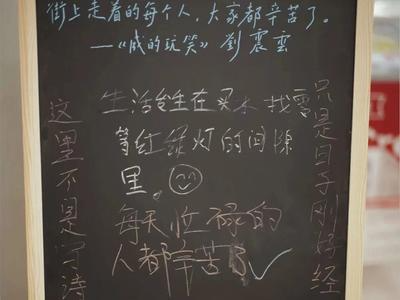 街上走着的每个人，大家都辛苦了。
——《咸的玩笑》劉震雲
生活发生在买水 找零
等红绿灯的间隙
里。
每天忙禄的
人都辛苦了
这里不是写诗
只是日子刚好经